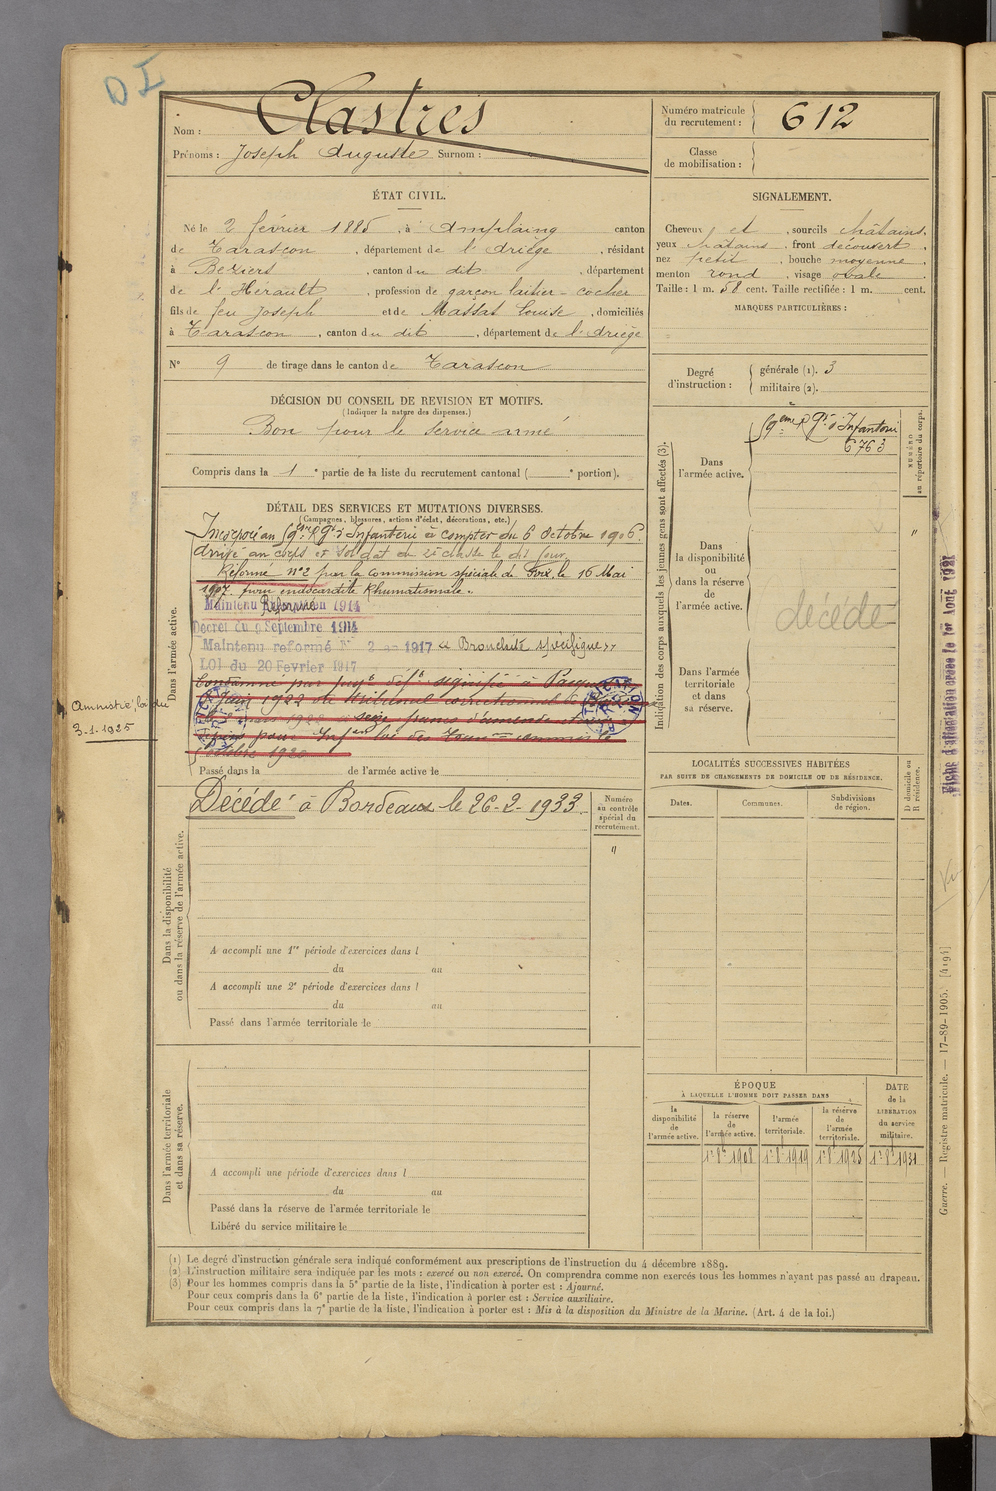 D I
Nom : Clastres
Prénoms : Joseph Auguste Surnom :
Numéro matricule du recrutement : 612
Classe de mobilisation :
ÉTAT CIVIL.
Né le 2 février 1885, à Amplaing canton
de Tarascon, département de l'Ariège, résidant
à Beziers, canton du dit, département
de l'Hérault, profession de garçon laitier - cocher
fils de feu Joseph et de Massat Louise, domiciliés
à Tarascon, canton du dit, département de l'Ariège
N° 9 de tirage dans le canton de Tarascon
SIGNALEMENT.
Cheveux et, sourcils châtains,
yeux châtains, front découvert,
nez petit, bouche moyenne,
menton rond, visage ovale.
Taille : 1 m. 58 cent. Taille rectifiée : 1 m. cent.
MARQUES PARTICULIÈRES :
Degré d'instruction : générale (1). 3
militaire (2).
DÉCISION DU CONSEIL DE REVISION ET MOTIFS.
(Indiquer la nature des dispenses.)
Bon pour le service armé
Compris dans la 1e partie de la liste du recrutement cantonal ( e portion).
DÉTAIL DES SERVICES ET MUTATIONS DIVERSES.
(Campagnes, blessures, actions d'éclat, décorations, etc.)
Dans l'armée active.
Incorporé au 59ème Rgt d'Infanterie à compter du 6 Octobre 1906.
Arrivé au corps et soldat de 2e classe le dit jour.
Réformé n°2 par la Commission spéciale de Foix, le 16 Mai
1907 pour endocardite Rhumatismale.
Maintenu Réformé en 1914
Décret du 9 Septembre 1914
Maintenu reformé N° 2 en 1917 « Bronchite spécifique »
LOI du 20 Fevrier 1917
Condamné par jugt déft signifié à
1922 du Tribunal correctionnel de
1922 à seize francs d'amende
pour Infon loi des commis le
octobre 1920
Amnistié, loi du
3-1-1925
Passé dans la de l'armée active le
Indication des corps auxquels les jeunes gens sont affectés (3).
Dans l'armée active.
59ème Rgt d'Infanterie
6763
NUMÉRO au répertoire du corps.
Dans la disponibilité ou dans la réserve de l'armée active.
"
décédé
Dans l'armée territoriale et dans sa réserve.
Fiche d'affectation créée le 1er Août 1921
Dans la disponibilité ou dans la réserve de l'armée active.
Décédé à Bordeaux le 26-2-1933.
Numéro au contrôle spécial du recrutement.
"
A accompli une 1re période d'exercices dans l
du au
A accompli une 2e période d'exercices dans l
du au
Passé dans l'armée territoriale le
LOCALITÉS SUCCESSIVES HABITÉES
PAR SUITE DE CHANGEMENTS DE DOMICILE OU DE RÉSIDENCE.
Dates. Communes. Subdivisions de région. D domicile ou R résidence.
Dans l'armée territoriale et dans sa réserve.
A accompli une période d'exercices dans l
du au
Passé dans la réserve de l'armée territoriale le
Libéré du service militaire le
ÉPOQUE
À LAQUELLE L'HOMME DOIT PASSER DANS
la disponibilité de l'armée active.
la réserve de l'armée active.
l'armée territoriale.
la réserve de l'armée territoriale.
DATE de la LIBÉRATION du service militaire.
1 8bre 1908 1 8bre 1919 1 8bre 1925 1 8bre 1931
Guerre. — Registre matricule. — 17-89-1905. [4194]
(1) Le degré d'instruction générale sera indiqué conformément aux prescriptions de l'instruction du 4 décembre 1889.
(2) L'instruction militaire sera indiquée par les mots : exercé ou non exercé. On comprendra comme non exercés tous les hommes n'ayant pas passé au drapeau.
(3) Pour les hommes compris dans la 5e partie de la liste, l'indication à porter est : Ajourné.
Pour ceux compris dans la 6e partie de la liste, l'indication à porter est : Service auxiliaire.
Pour ceux compris dans la 7e partie de la liste, l'indication à porter est : Mis à la disposition du Ministre de la Marine. (Art. 4 de la loi.)